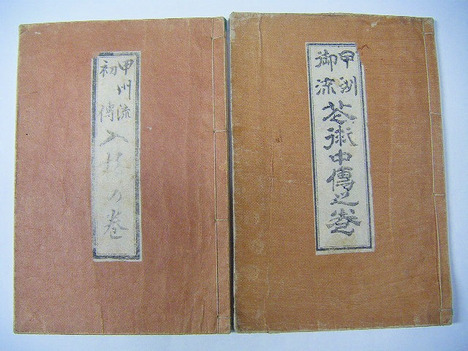 甲州
御流
術中傳之巻
甲州流
初傳
入の巻